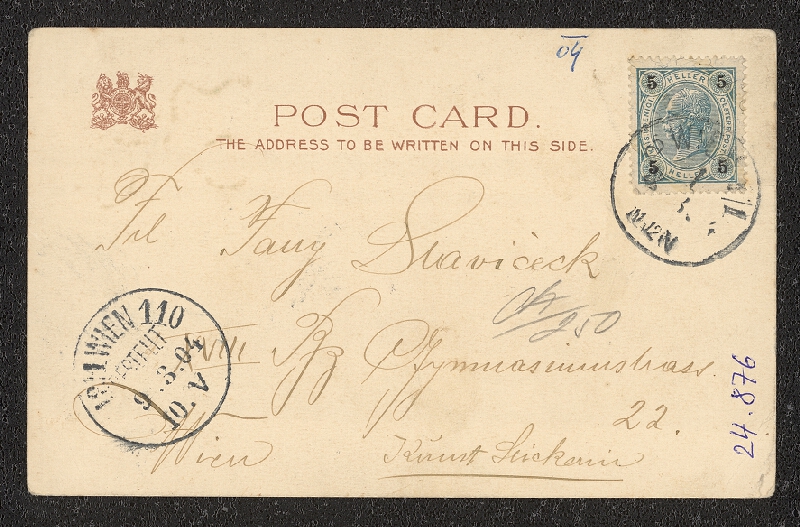 04
POST CARD.
THE ADDRESS TO BE WRITTEN ON THIS SIDE.
5 HELLER 5
5 HELLER 5
WIEN
Frl Fany Slaviceck
XVIII Gymnasiumstrass.
22.
Wien
Kunst Stickerin
WIEN 110
BESTELLT
9.3.04
10.V
250
24.876